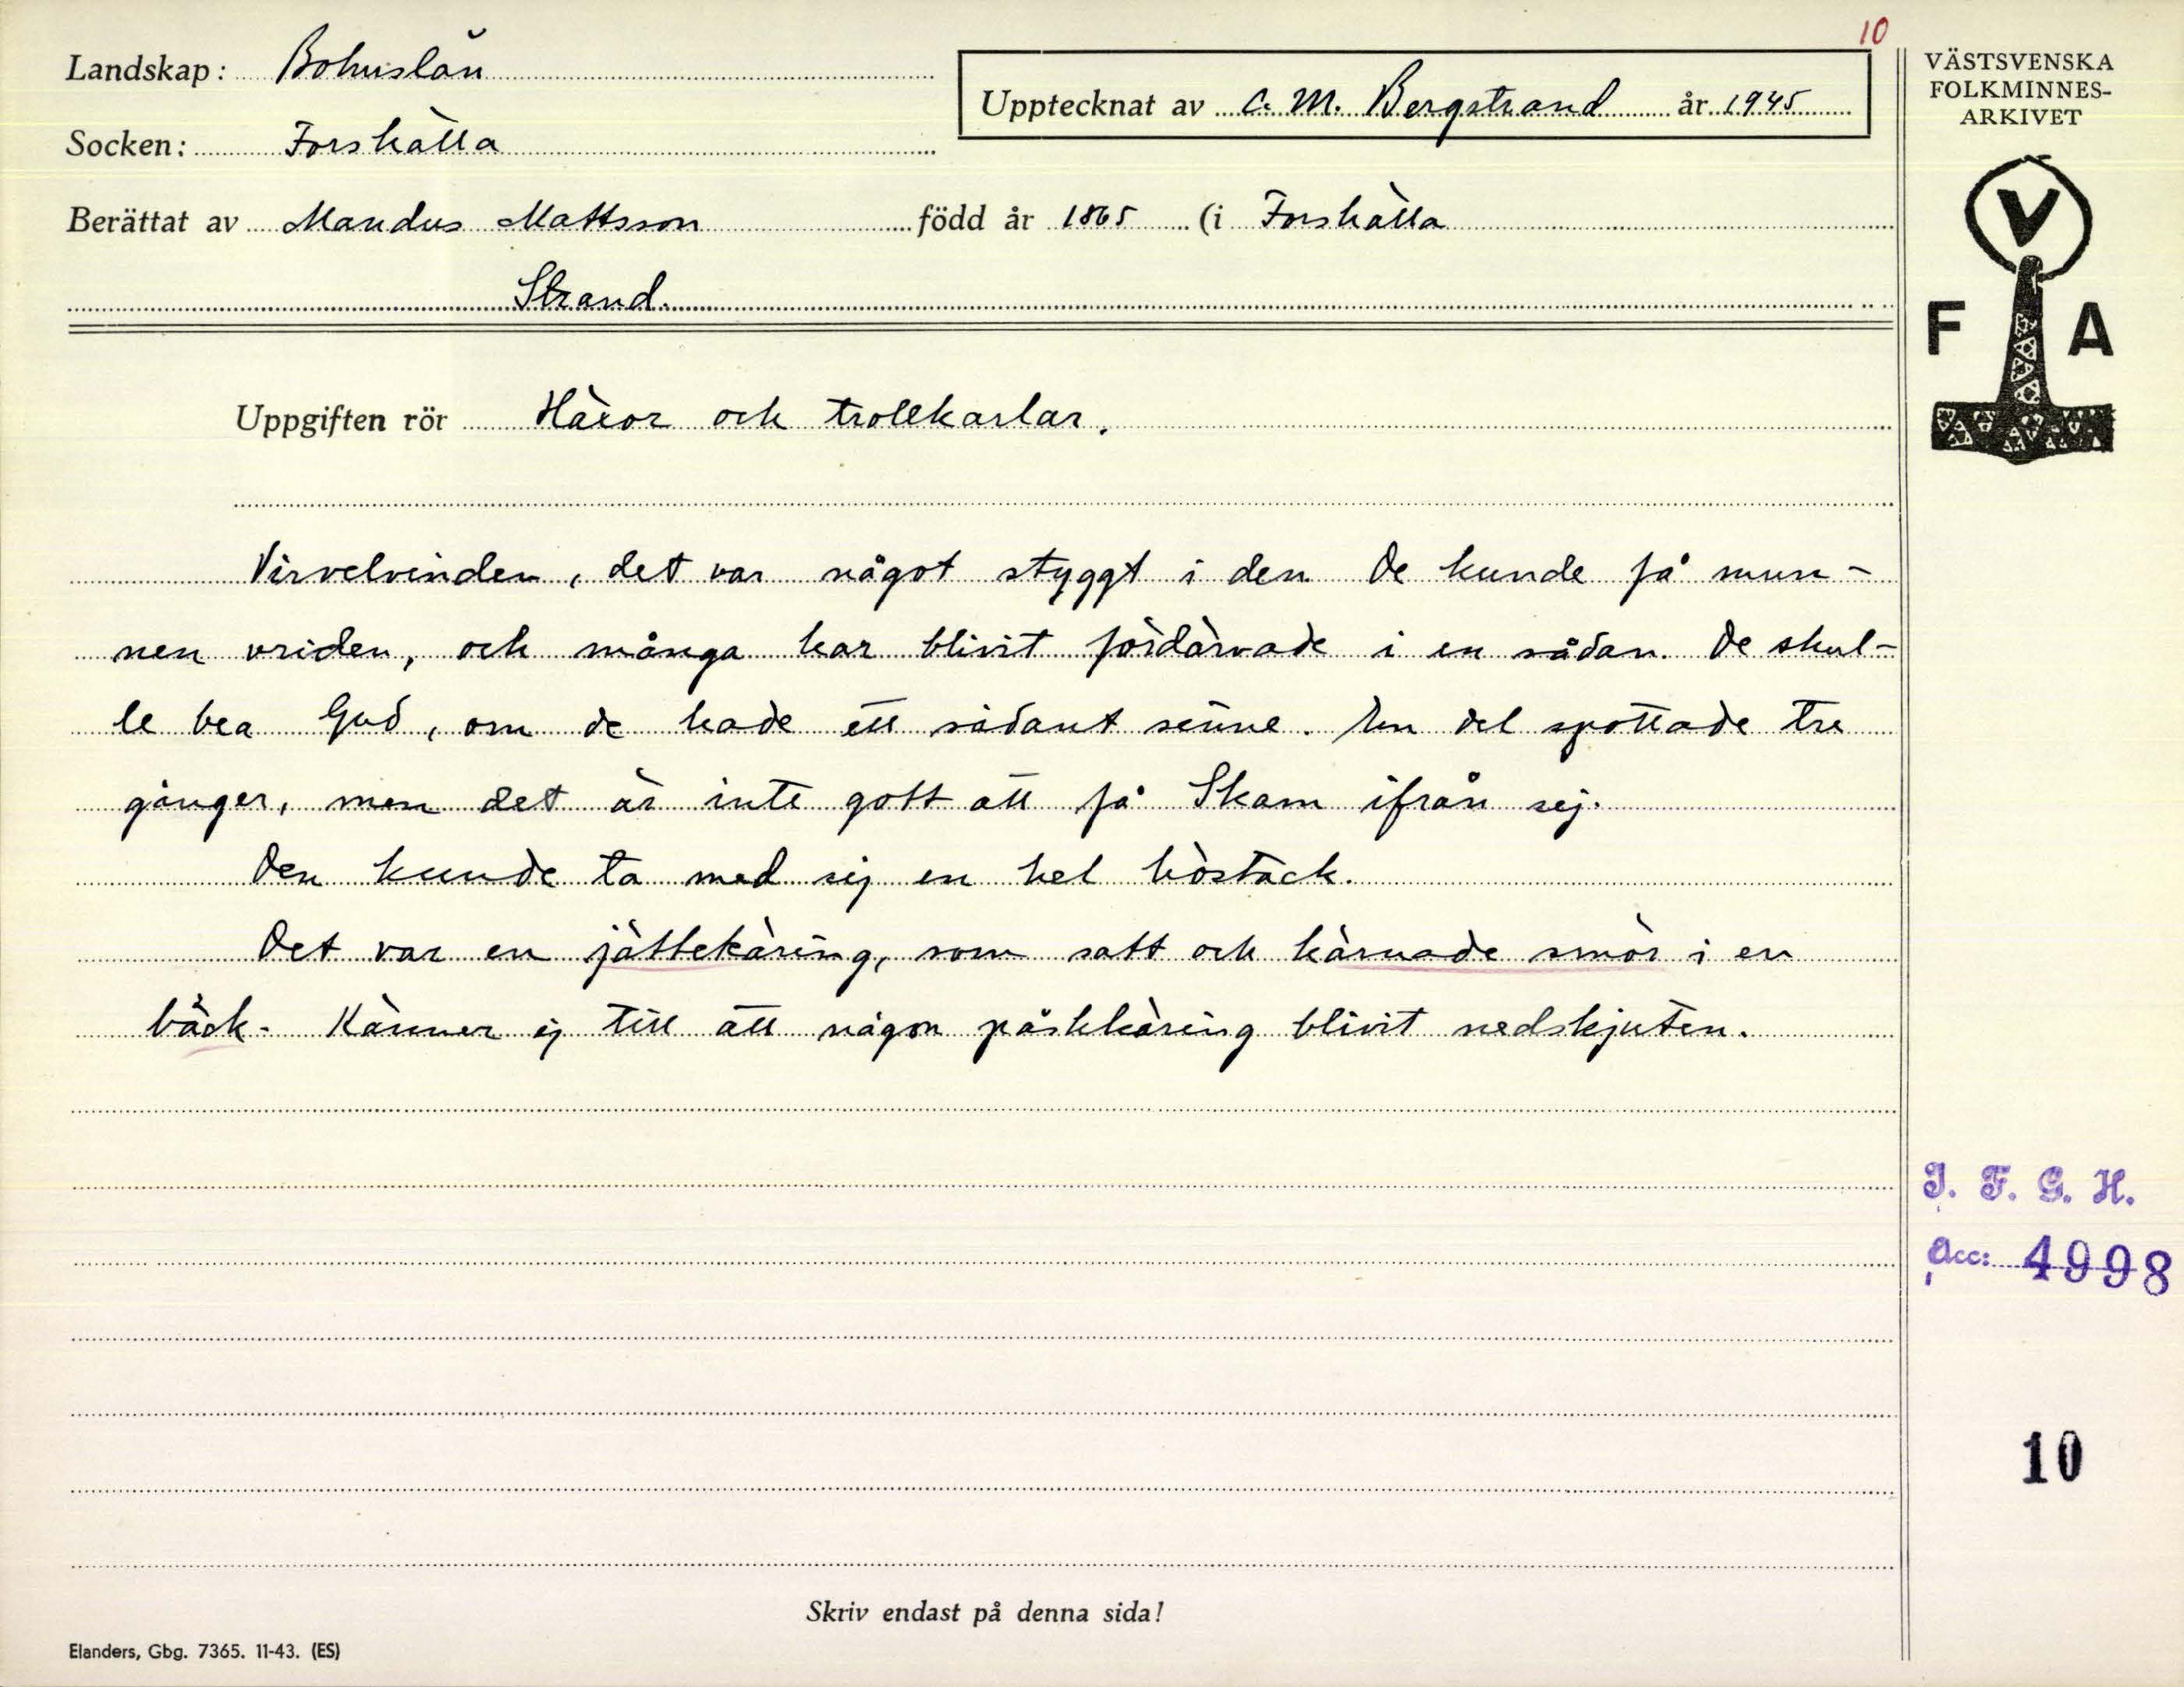 10
Landskap: Bohuslän
Upptecknat av C. M. Bergstrand år 1945
Socken: Forshälla
Berättat av Mandus Mattsson född år 1865 (i Forshälla
Strand.
VÄSTSVENSKA
FOLKMINNES-
ARKIVET
V
F A
Uppgiften rör Häxor och trollkarlar.
Virvelvinden, det var något styggt i den De kunde få mun-
nen vriden, och många har blivit fördärvade i en sådan. De skul-
le bea Gud, om de hade ett sådant sinne. En del spottade tre
gånger, men det är inte gott att få Skam ifrån sej.
Den kunde ta med sej en hel höstack.
Det var en jättekäring, som satt och kärnade smör i en
bäck. Känner ej till att någon påskkäring blivit nedskjuten.
I. F. G. H.
Acc: 4998
10
Skriv endast på denna sida!
Elanders, Gbg. 7365. 11-43. (ES)